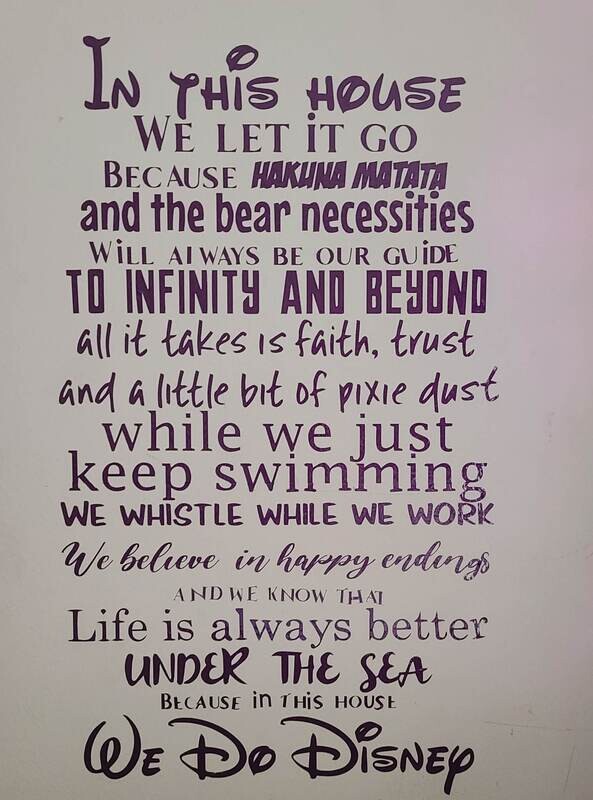 In this house
We let it go
Because Hakuna Matata
and the bear necessities
Will always be our guide
To infinity and beyond
all it takes is faith, trust
and a little bit of pixie dust
while we just
keep swimming
We whistle while we work
We believe in happy endings
And we know that
Life is always better
under the sea
Because in this house
We Do Disney